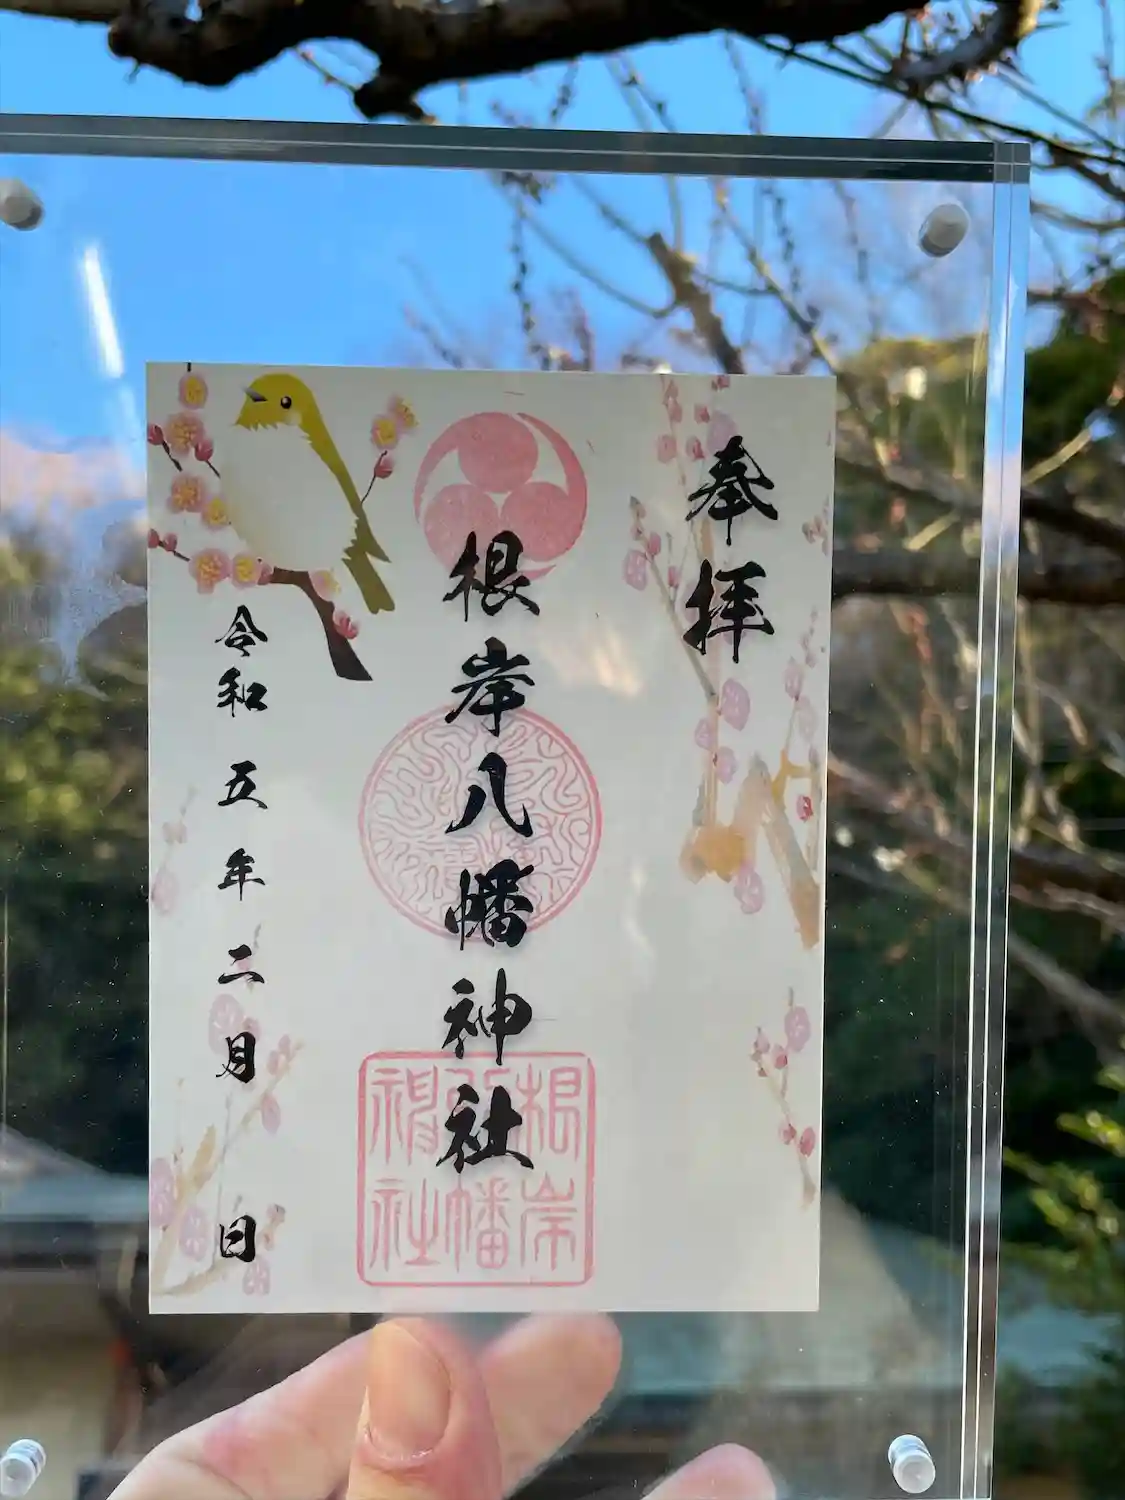 奉拝
根岸八幡神社
令和五年二月 日
根岸
八幡
神社